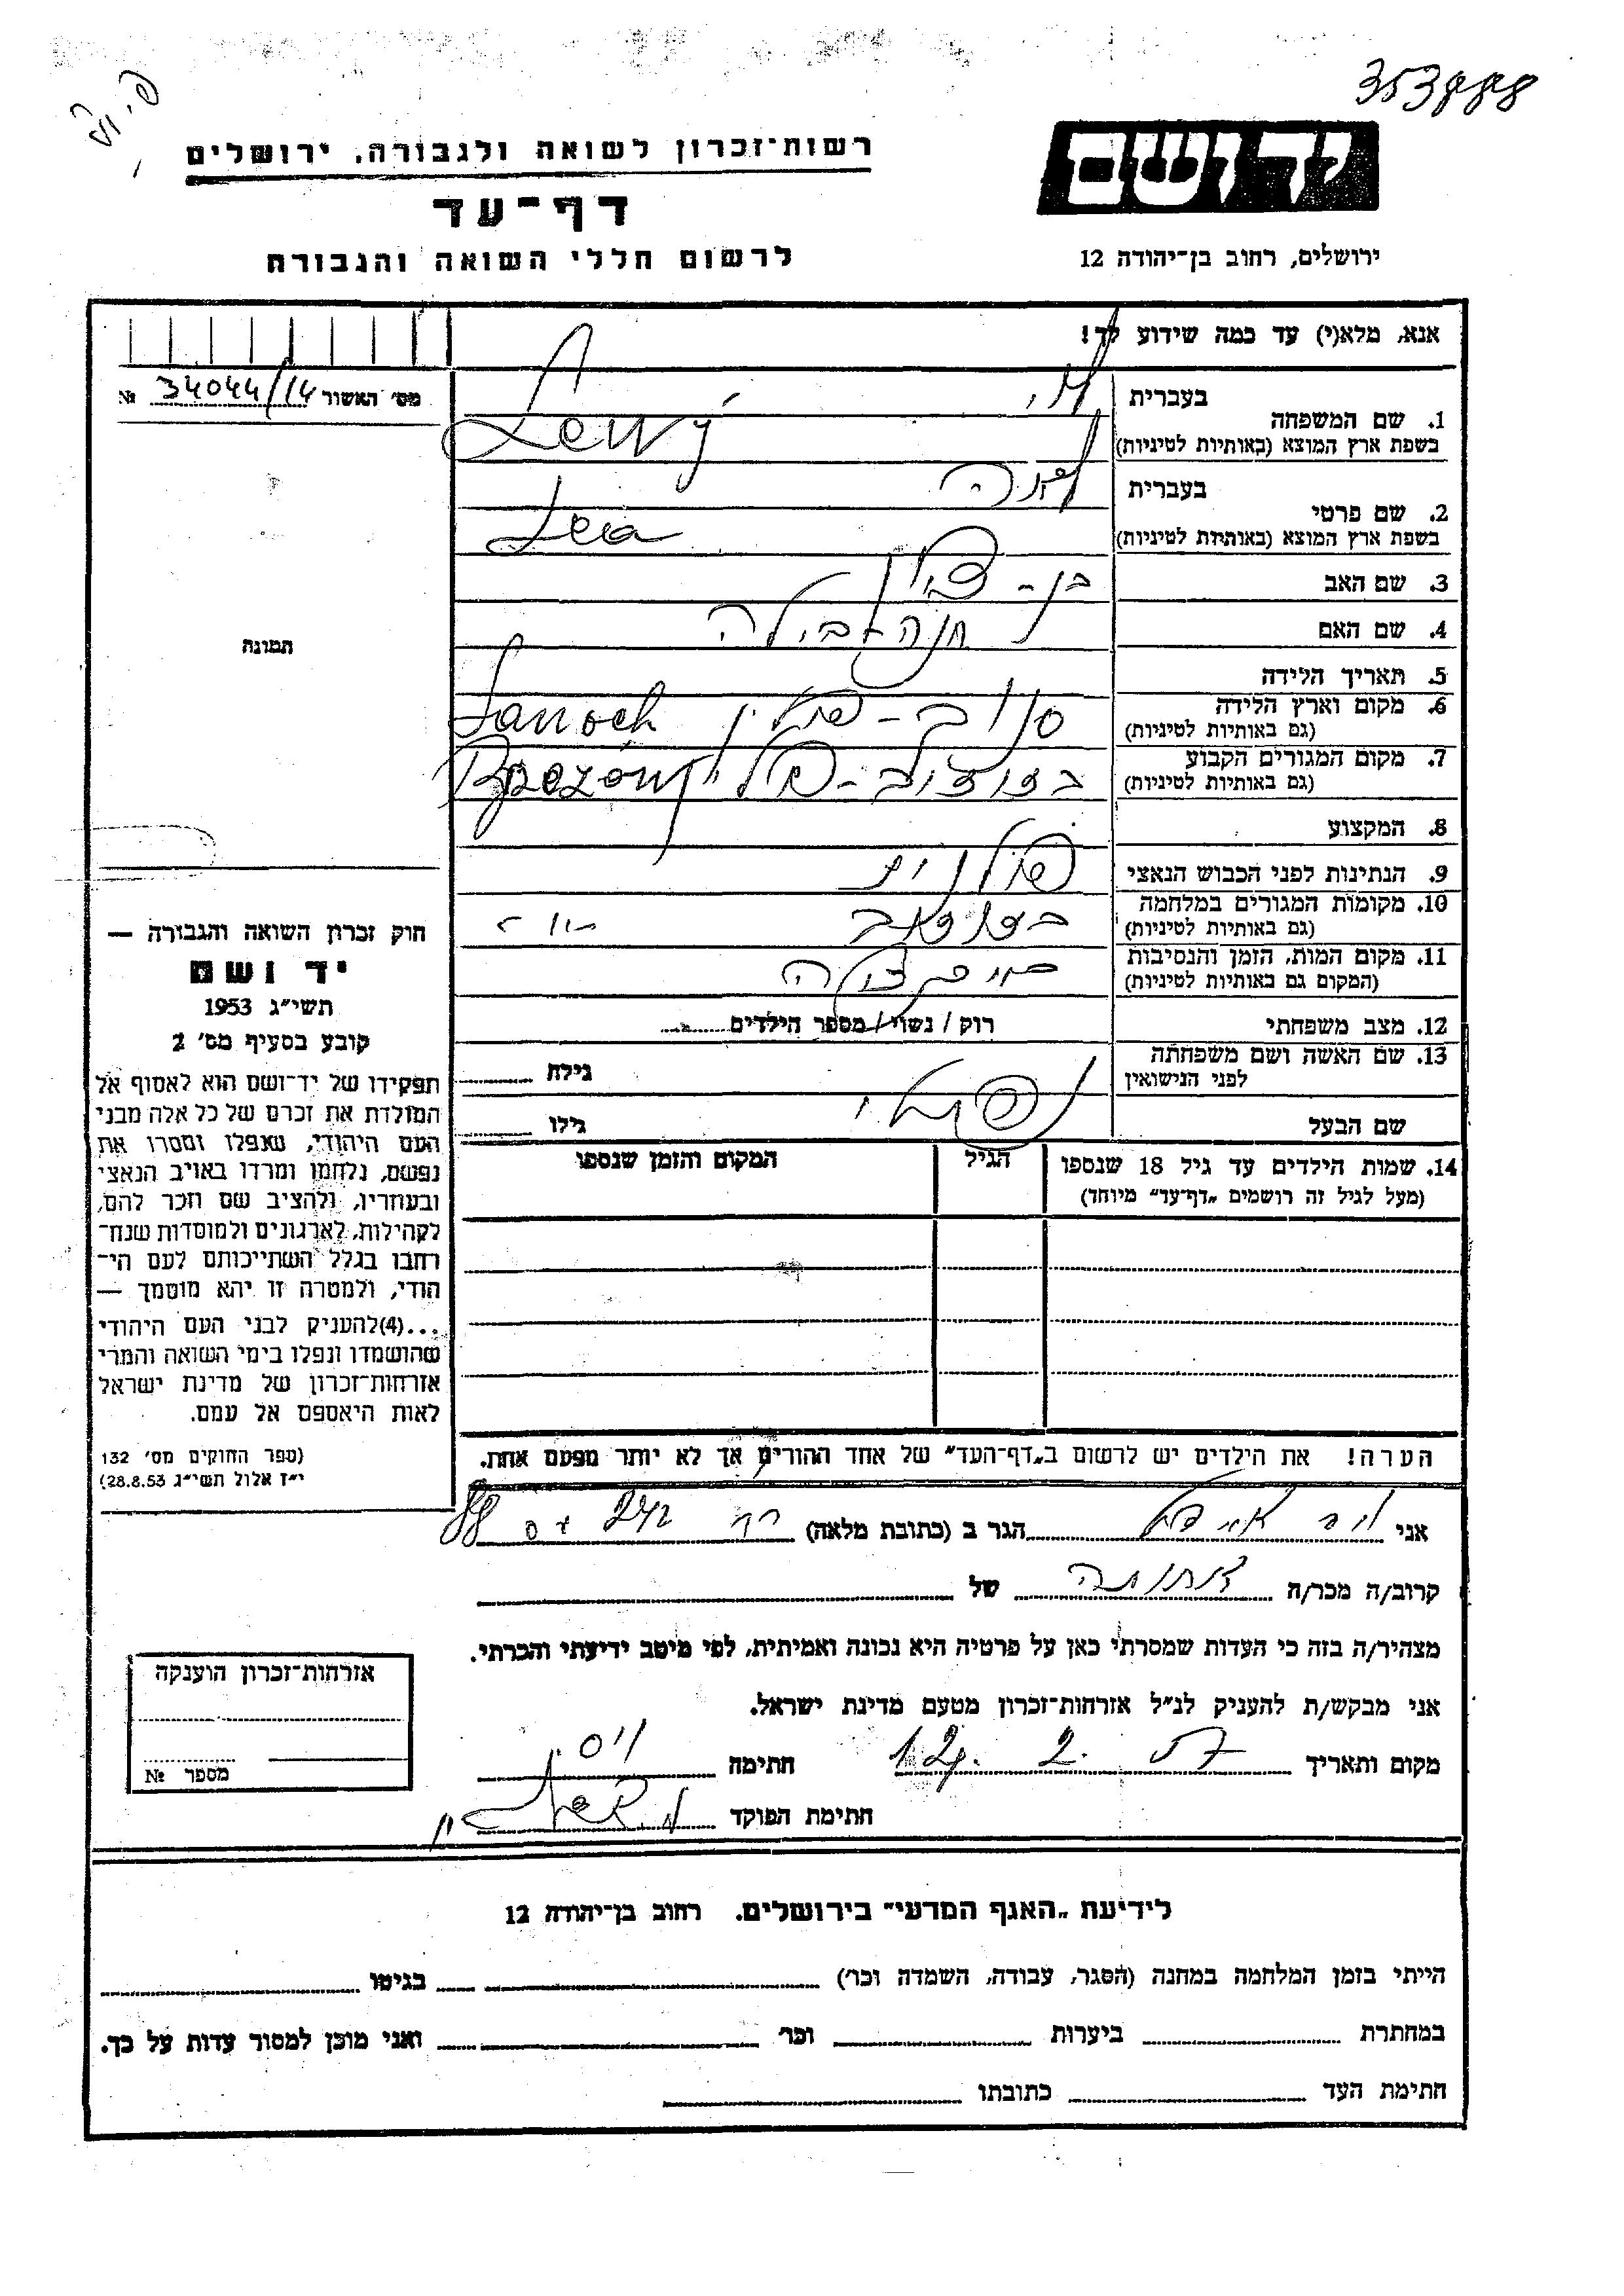 353888
רשות־זכרון לשואה ולגבורה, ירושלים
יד ושם
דף־עד
לרשום חללי השואה והגבורה
ירושלים, רחוב בן־יהודה 12
אנא, מלא(י) עד כמה שידוע לך!
מס׳ האשור 34044/14 №
1. שם המשפחה
בעברית לוי
בשפת ארץ המוצא (באותיות לטיניות) Lewy
2. שם פרטי
בעברית לאה
בשפת ארץ המוצא (באותיות לטיניות) Lea
3. שם האב בן-ציון
4. שם האם חנה
5. תאריך הלידה
6. מקום וארץ הלידה (גם באותיות לטיניות) סנוק-פולין Sanock
7. מקום המגורים הקבוע (גם באותיות לטיניות) -פולין
8. המקצוע
9. הנתינות לפני הכבוש הנאצי פולנית
10. מקומות המגורים במלחמה (גם באותיות לטיניות) - " -
11. מקום המות, הזמן והנסיבות (המקום גם באותיות לטיניות)
12. מצב משפחתי רוק / נשוי / מספר הילדים
13. שם האשה ושם משפחתה לפני הנישואין גילה
שם הבעל נפתלי גילו
14. שמות הילדים עד גיל 18 שנספו (מעל לגיל זה רושמים „דף־עד” מיוחד)
הגיל
המקום והזמן שנספו
הערה! את הילדים יש לרשום ב„דף־העד” של אחד ההורים אך לא יותר מפעם אחת.
תמונה
חוק זכרון השואה והגבורה —
יד ושם
תשי״ג 1953
קובע בסעיף מס׳ 2
תפקידו של יד־ושם הוא לאסוף אל
המולדת את זכרם של כל אלה מבני
העם היהודי, שנפלו ומסרו את
נפשם, נלחמו ומרדו באויב הנאצי
ובעוזריו, ולהציב שם וזכר להם,
לקהילות, לארגונים ולמוסדות שנח־
רבו בגלל השתייכותם לעם הי־
הודי, ולמטרה זו יהא מוסמך —
...(4) להעניק לבני העם היהודי
שהושמדו ונפלו בימי השואה והמרי
אזרחות־זכרון של מדינת ישראל
לאות היאספם אל עמם.
(ספר החוקים מס׳ 132
י״ז אלול תשי״ג 28.8.53)
אני הגר ב (כתובת מלאה) 88
קרוב/ה מכר/ה של
מצהיר/ה בזה כי העדות שמסרתי כאן על פרטיה היא נכונה ואמיתית, לפי מיטב ידיעתי והכרתי.
אני מבקש/ת להעניק לנ״ל אזרחות־זכרון מטעם מדינת ישראל.
מקום ותאריך 12. 2. 57 חתימה
חתימת הפוקד
אזרחות־זכרון הוענקה
מספר №
לידיעת „האגף המדעי” בירושלים. רחוב בן־יהודה 12
הייתי בזמן המלחמה במחנה (הסגר, עבודה, השמדה וכו׳) בגיטו
במחתרת ביערות וכו׳ ואני מוכן למסור עדות על כך.
חתימת העד כתובתו